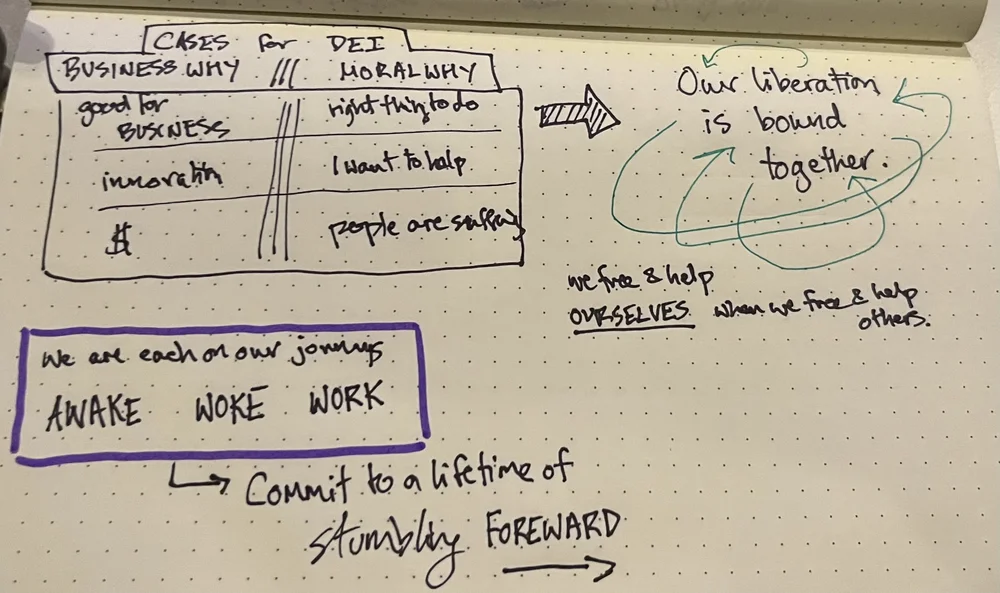 CASES for DEI
BUSINESS WHY /// MORAL WHY
good for BUSINESS
right thing to do
innovation
I want to help
$
people are suffering
Our liberation
is bound
together.
we free & help
OURSELVES when we free & help
others.
We are each on our journeys
AWAKE WOKE WORK
Commit to a lifetime of
stumbling FOREWARD